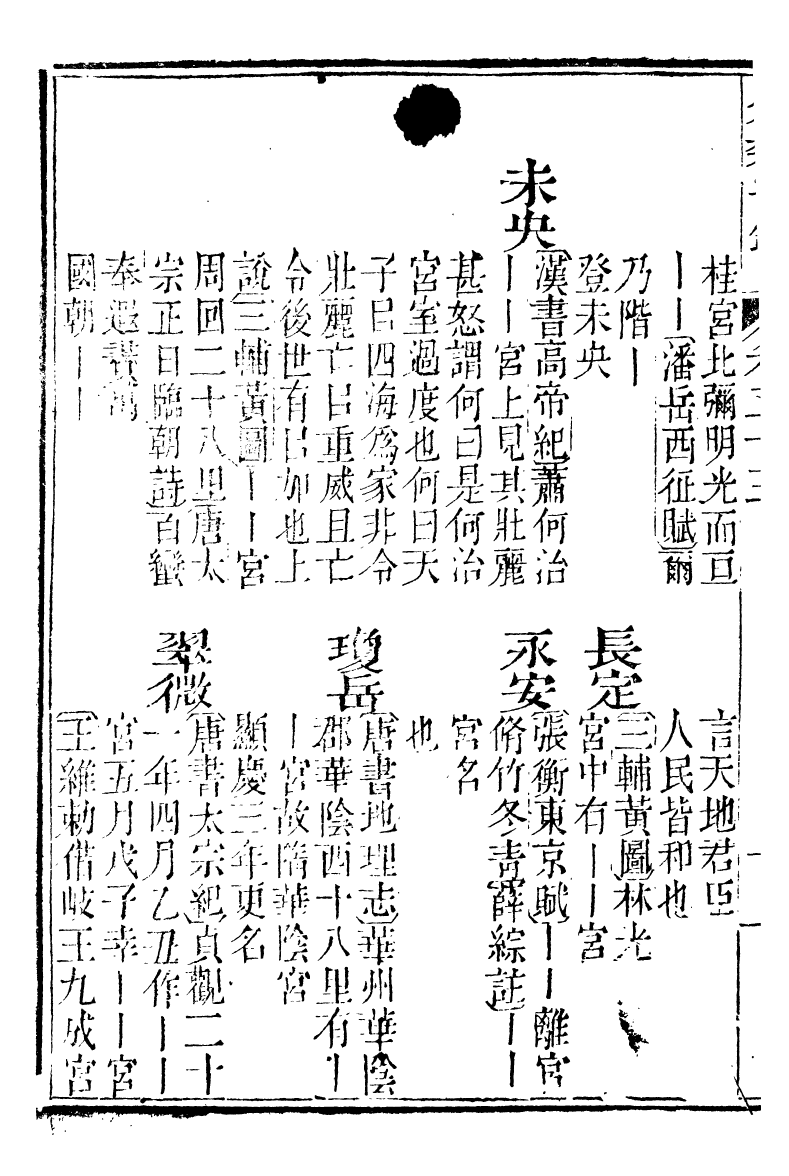 桂宮北彌明光而亘
丨丨潘岳西征賦爾
乃階丨
登未央
未央
漢書高帝紀蕭何治
丨丨宮上見其壯麗
甚怒謂何曰是何治
宮室過度也何曰天
子曰四海爲家非令
壯麗亡㠯重威且亡
令後世有㠯加也上
說三輔黃圖丨丨宮
周回二十八里唐太
宗正日臨朝詩百蠻
奉遐賮萬
國朝丨丨
言天地君臣
人民皆和也
長定
三輔黃圖林光
宮中有丨丨宮
永安
張衡東京賦丨丨離宮
脩竹冬青薛綜註丨丨
宮名
也
瓊岳
唐書地理志華州華陰
郡華陰西十八里有丨
丨宮故隋華陰宮
顯慶三年更名
翠微
唐書太宗紀貞觀二十
一年四月乙丑作丨丨
宮五月戊子幸丨丨宮
王維勅借岐王九成宮